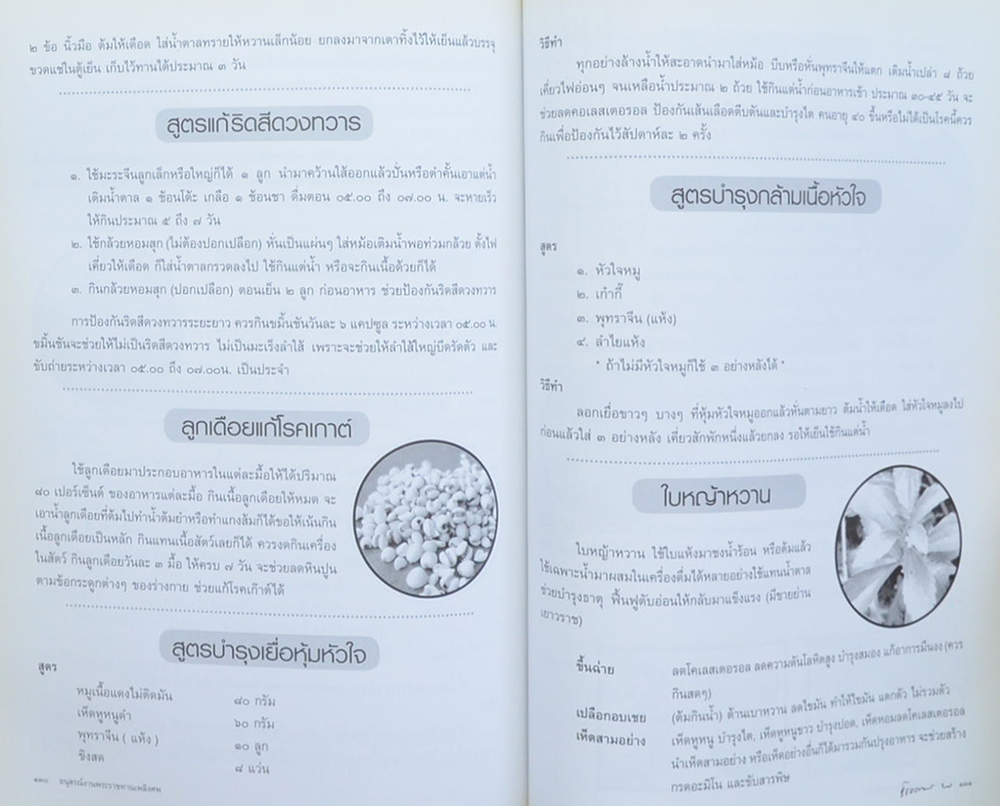 ๒ ข้อ นิ้วมือ ต้มให้เดือด ใส่น้ำตาลทรายให้หวานเล็กน้อย ยกลงมาจากเตาทิ้งไว้ให้เย็นแล้วบรรจุ
ขวดแช่ในตู้เย็น เก็บไว้ทานได้ประมาณ ๓ วัน
สูตรแก้ริดสีดวงทวาร
๑. ใช้มะระจีนลูกเล็กหรือใหญ่ก็ได้ ๑ ลูก นำมาคว้านไส้ออกแล้วปั่นหรือตำคั้นเอาแต่น้ำ
เติมน้ำตาล ๑ ช้อนโต๊ะ เกลือ ๑ ช้อนชา ดื่มตอน ๐๕.๐๐ ถึง ๐๗.๐๐ น. จะหายเร็ว
ให้กินประมาณ ๕ ถึง ๗ วัน
๒. ใช้กล้วยหอมสุก (ไม่ต้องปอกเปลือก) หั่นเป็นแผ่นๆ ใส่หม้อเติมน้ำพอท่วมกล้วย ตั้งไฟ
เคี่ยวให้เดือด ก็ใส่น้ำตาลกรวดลงไป ใช้กินแต่น้ำ หรือจะกินเนื้อด้วยก็ได้
๓. กินกล้วยหอมสุก (ปอกเปลือก) ตอนเย็น ๒ ลูก ก่อนอาหาร ช่วยป้องกันริดสีดวงทวาร
การป้องกันริดสีดวงทวารระยะยาว ควรกินขมิ้นชันวันละ ๖ แคปซูล ระหว่างเวลา ๐๕.๐๐ น.
ขมิ้นชันจะช่วยให้ไม่เป็นริดสีดวงทวาร ไม่เป็นมะเร็งลำไส้ เพราะจะช่วยให้ลำไส้ใหญ่บีดรัดตัว และ
ขับถ่ายระหว่างเวลา ๐๕.๐๐ ถึง ๐๗.๐๐น. เป็นประจำ
ลูกเดือยแก้โรคเกาต์
ใช้ลูกเดือยมาประกอบอาหารในแต่ละมื้อให้ได้ปริมาณ
๘๐ เปอร์เซ็นต์ ของอาหารแต่ละมื้อ กินเนื้อลูกเดือยให้หมด จะ
เอาน้ำลูกเดือยที่ต้มไปทำน้ำต้มยำหรือทำแกงส้มก็ได้ขอให้เน้นกิน
เนื้อลูกเดือยเป็นหลัก กินแทนเนื้อสัตว์เลยก็ได้ ควรงดกินเครื่อง
ในสัตว์ กินลูกเดือยวันละ ๓ มื้อ ให้ครบ ๗ วัน จะช่วยลดหินปูน
ตามข้อกระดูกต่างๆ ของร่างกาย ช่วยแก้โรคเก๊าต์ได้
สูตรบำรุงเยื่อหุ้มหัวใจ
สูตร
หมูเนื้อแดงไม่ติดมัน ๘๐ กรัม
เห็ดหูหนูดำ ๖๐ กรัม
พุทราจีน ( แห้ง ) ๑๐ ลูก
ขิงสด ๘ แว่น
๑๓๐ อนุสรณ์งานพระราชทานเพลิงศพ
วิธีทำ
ทุกอย่างล้างน้ำให้สะอาดนำมาใส่หม้อ บีบหรือหั่นพุทราจีนให้แตก เติมน้ำเปล่า ๘ ถ้วย
เคี่ยวไฟอ่อนๆ จนเหลือน้ำประมาณ ๒ ถ้วย ใช้กินแต่น้ำก่อนอาหารเช้า ประมาณ ๓๐-๔๕ วัน จะ
ช่วยลดคอเลสเตอรอล ป้องกันเส้นเลือดตีบตันและบำรุงไต คนอายุ ๔๐ ขึ้นหรือไม่ได้เป็นโรคนี้ควร
กินเพื่อป้องกันไว้สัปดาห์ละ ๒ ครั้ง
สูตรบำรุงกล้ามเนื้อหัวใจ
สูตร
๑. หัวใจหมู
๒. เก๋ากี้
๓. พุทราจีน (แห้ง)
๔. ลำไยแห้ง
* ถ้าไม่มีหัวใจหมูก็ใช้ ๓ อย่างหลังได้ *
วิธีทำ
ลอกเยื่อขาวๆ บางๆ ที่หุ้มหัวใจหมูออกแล้วหั่นตามยาว ต้มน้ำให้เดือด ใส่หัวใจหมูลงไป
ก่อนแล้วใส่ ๓ อย่างหลัง เคี่ยวสักพักหนึ่งแล้วยกลง รอให้เย็นใช้กินแต่น้ำ
ใบหญ้าหวาน
ใบหญ้าหวาน ใช้ใบแห้งมาชงน้ำร้อน หรือต้มแล้ว
ใช้เฉพาะน้ำมาผสมในเครื่องดื่มได้หลายอย่างใช้แทนน้ำตาล
ช่วยบำรุงธาตุ ฟื้นฟูตับอ่อนให้กลับมาแข็งแรง (มีขายย่าน
เยาวราช)
ขึ้นฉ่าย ลดโคเลสเตอรอล ลดความดันโลหิตสูง บำรุงสมอง แก้อาการมึนงง (ควร
กินสดๆ)
เปลือกอบเชย (ต้มกินน้ำ) ต้านเบาหวาน ลดไขมัน ทำให้ไขมัน แตกตัว ไม่รวมตัว
เห็ดสามอย่าง เห็ดหูหนู บำรุงไต, เห็ดหูหนูขาว บำรุงปอด, เห็ดหอมลดโคเลสเตอรอล
นำเห็ดสามอย่าง หรือเห็ดอย่างอื่นก็ได้มารวมกันปรุงอาหาร จะช่วยสร้าง
กรดอะมิโน และขับสารพิษ
๑๓๑